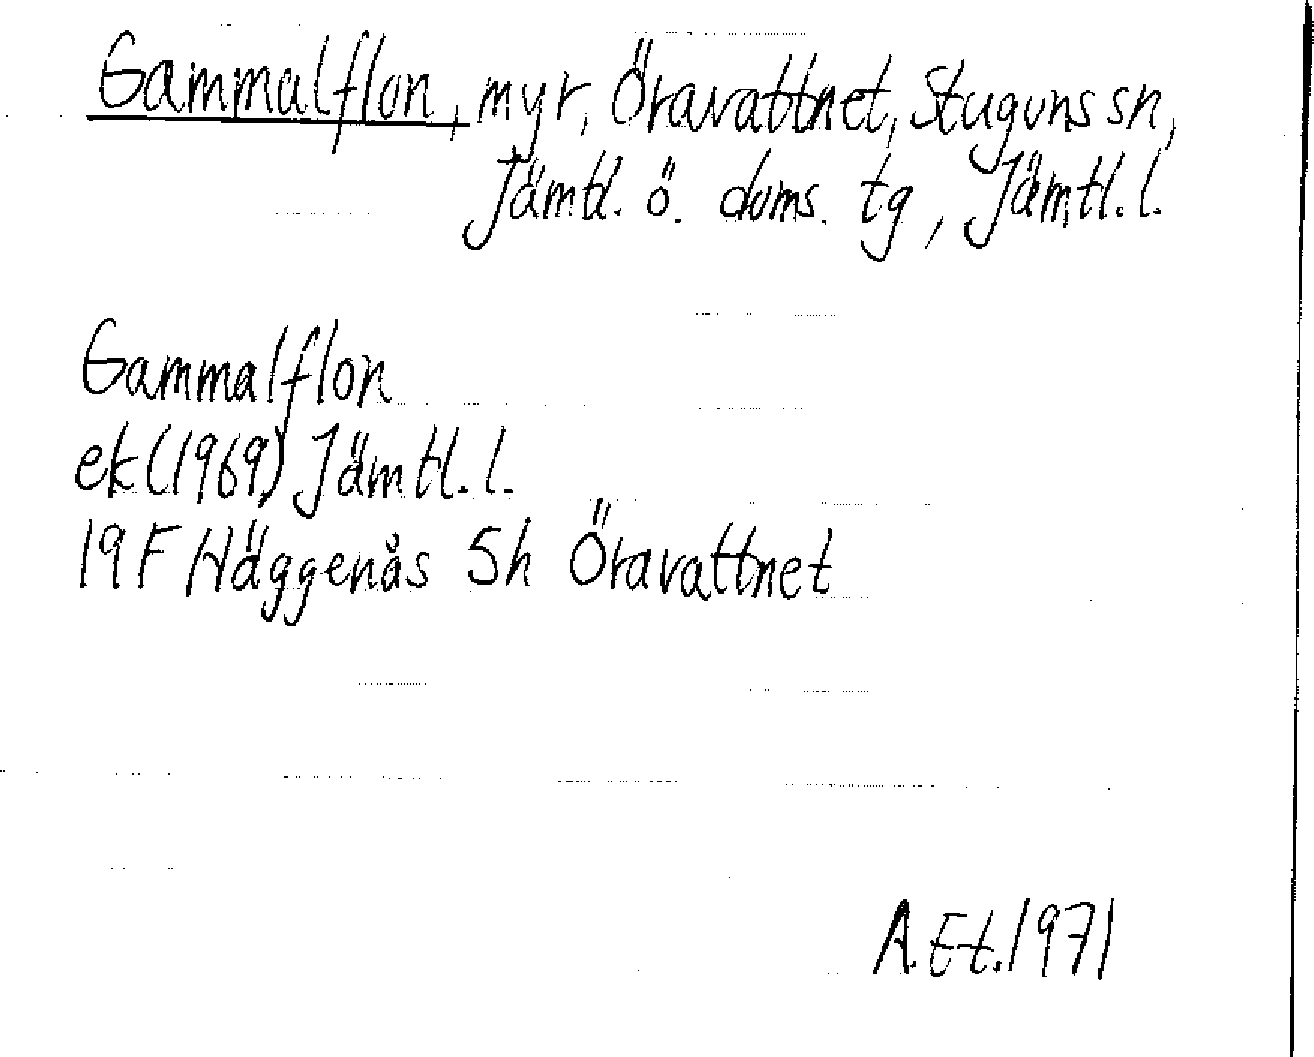 Gammalflon, myr, Öravattnet, Stuguns sn,
Jämtl. ö. doms. tg, Jämtl. l.
Gammalflon
ek (1969) Jämtl. l.
19 F Häggenås 5h Öravattnet
A. Et. 1971